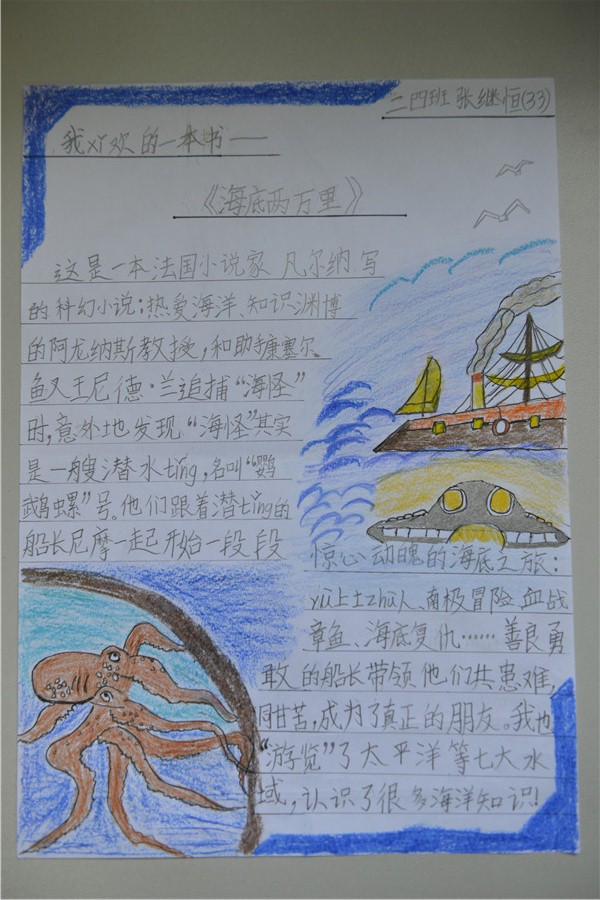 二四班 张继恒(33)
我xǐ欢的一本书——
《海底两万里》
这是一本法国小说家 凡尔纳 写
的科幻小说:热爱海洋、知识渊博
的阿龙纳斯教授,和助手康塞尔、
鱼叉王尼德·兰追捕“海怪”
时,意外地发现“海怪”其实
是一艘潜水tǐng,名叫“鹦
鹉螺”号。他们跟着潜tǐng的
船长尼摩一起开始一段段
惊心动魄的海底之旅:
yù上土zhù人、南极冒险、血战
章鱼、海底复仇……善良勇
敢的船长带领他们共患难,
同甘苦,成为了真正的朋友。我也
“游览”了太平洋等七大水
域,认识了很多海洋知识!